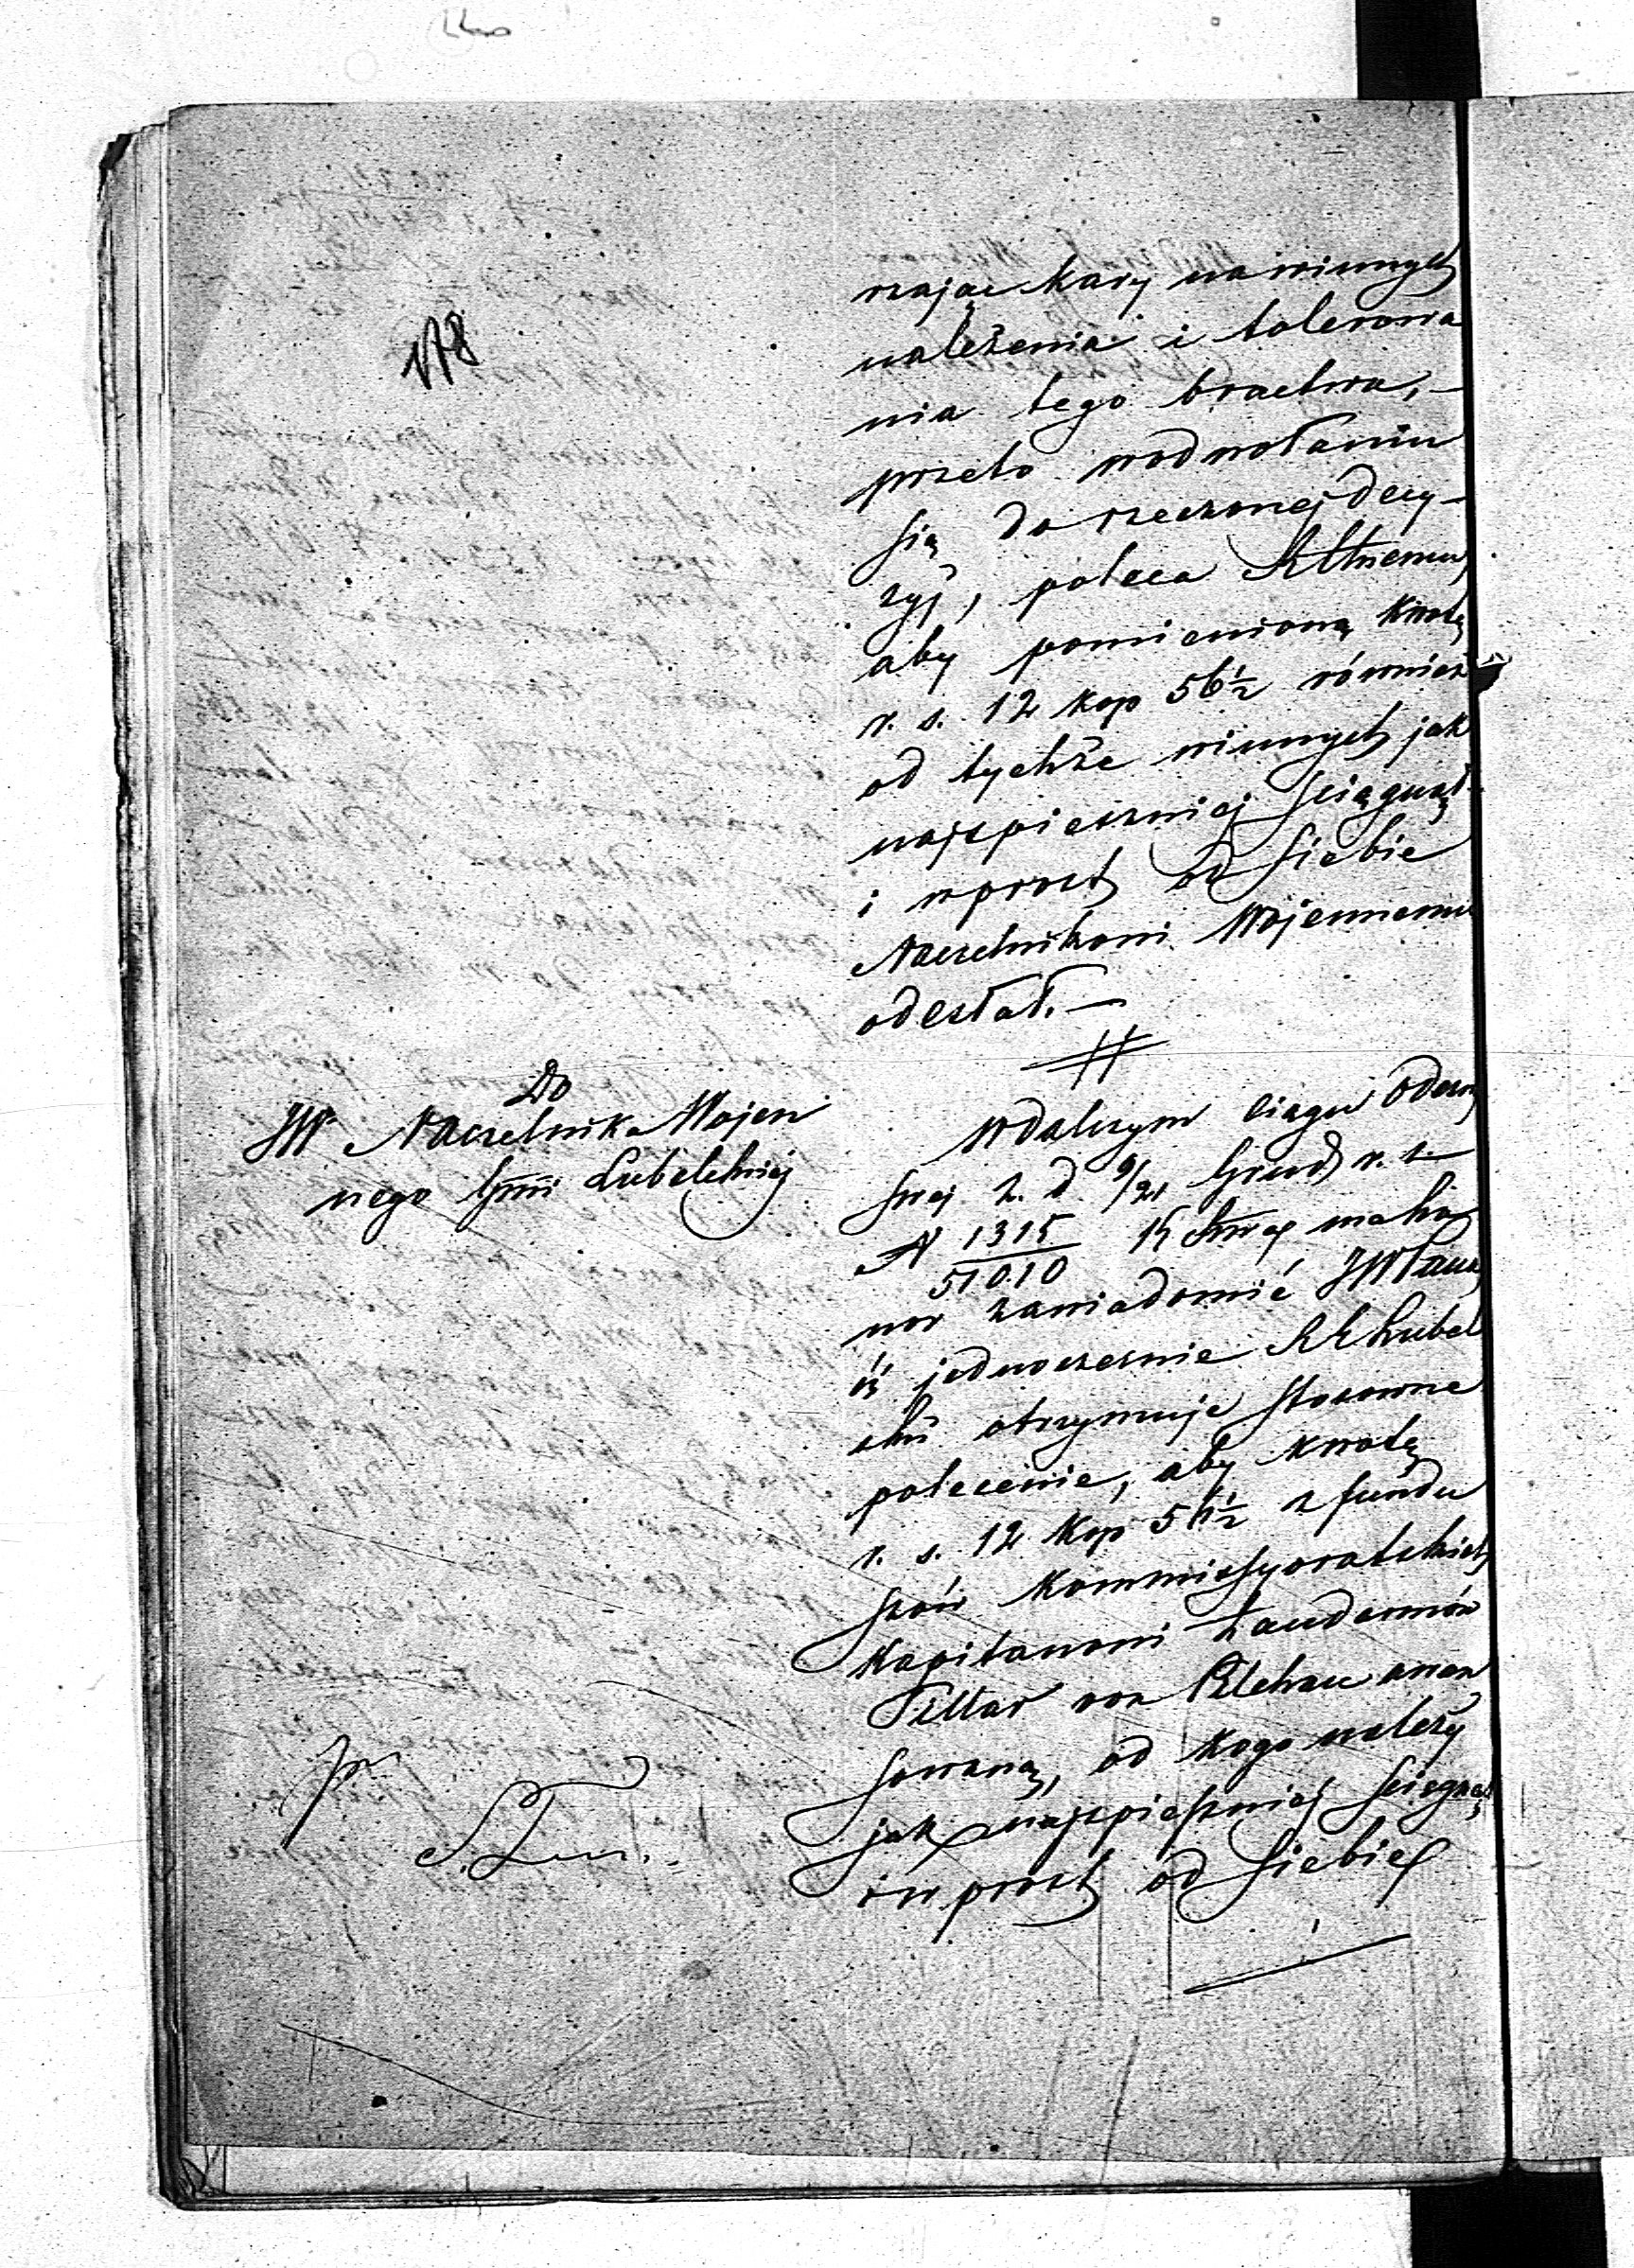 178
rzając kary na winnych
należenia i tolerowa
nia tego bractwa, —
przeto w odwołaniu
się do rzeczonej decy-
zyj, poleca
aby pomienioną kwotę
r. s. 12 kop 56½ również
od tychże winnych jak
najspieszniej ściągnął
i wprost od siebie
Naczelnikowi Wojennemu
odesłał. —
Do
JW Naczelnika Wojen
nego Gnii Lubelskiej
W dalszym ciągu odezwy
swej z d 9/21 Grud r. z.
N 1315/51010 ma ho
nor zawiadomić JWPana
iż jednocześnie Lubel
ski otrzymuje stosowne
polecenie, aby kwotę
r. s. 12 kop 56½ z fundu
szów Kommissyoratskich
Kapitanowi Żandarmów
von awan
sowaną, od kogo należy
jak najspieszniej ściągnął
i wprost od siebie